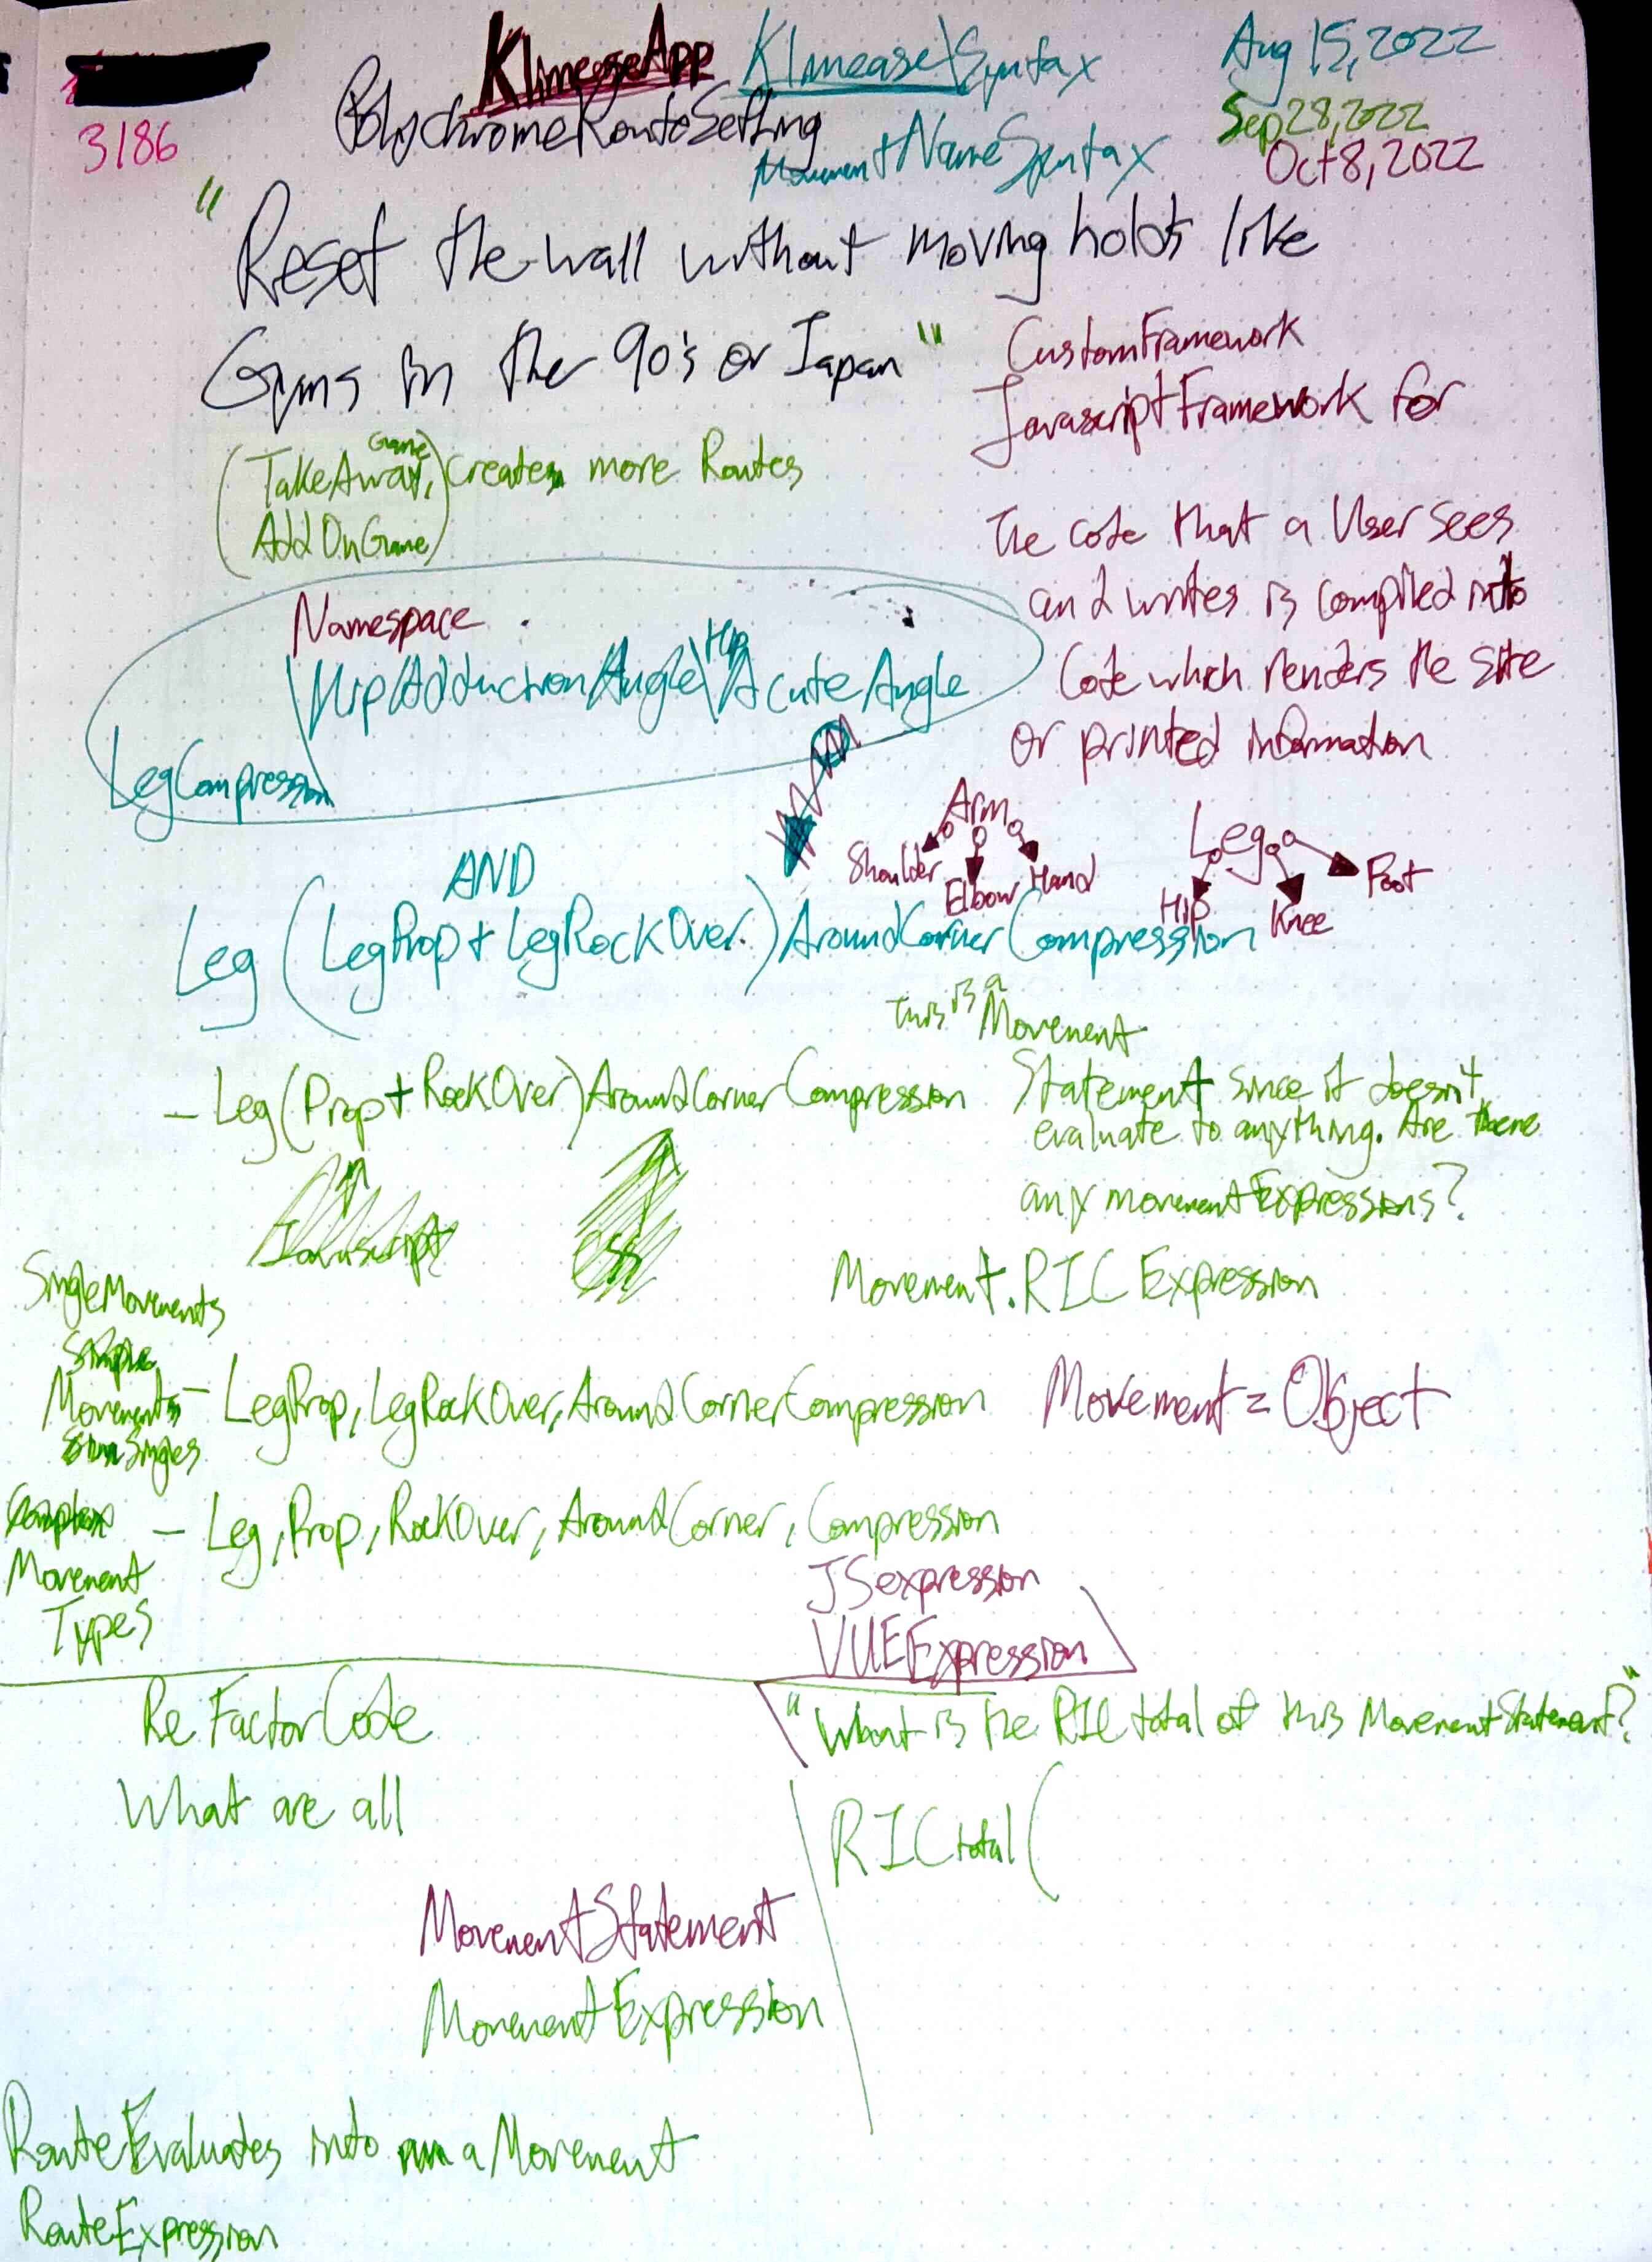 KlimeaseApp
Klimease\Syntax
Aug 15, 2022
3186
PolychromeRouteSetting
Sep 28, 2022
MovementNameSyntax
Oct 8, 2022
"Reset the wall without moving holds like
Gyms in the 90's or Japan"
CustomFramework
JavascriptFramework for
(TakeAwayGame, AddOnGame) creates more Routes
The code that a User sees
and writes is compiled into
Code which renders the site
or printed information
Namespace
\Hip/Adduction/Angle\Hip/Acute/Angle
LegCompression
Arm
Shoulder
Elbow
Hand
Leg
Hip
Knee
Foot
AND
Leg(LegProp + LegRockOver)AroundCornerCompression
This is a Movement
Statement since it doesn't
evaluate to anything. Are there
any movementExpressions?
- Leg(Prop + RockOver)AroundCornerCompression
Javascript
CSS
Movement.RICExpression
SingleMovements
Simple
Movements
Singles
- LegProp, LegRockOver, AroundCornerCompression
Movement = Object
Complex
Movement
Types
- Leg, Prop, RockOver, AroundCorner, Compression
JSexpression
VUEExpression
ReFactorCode
"What is the RIC total of this MovementStatement?"
What are all
RICtotal(
MovementStatement
MovementExpression
RouteEvaluates into a Movement
RouteExpression